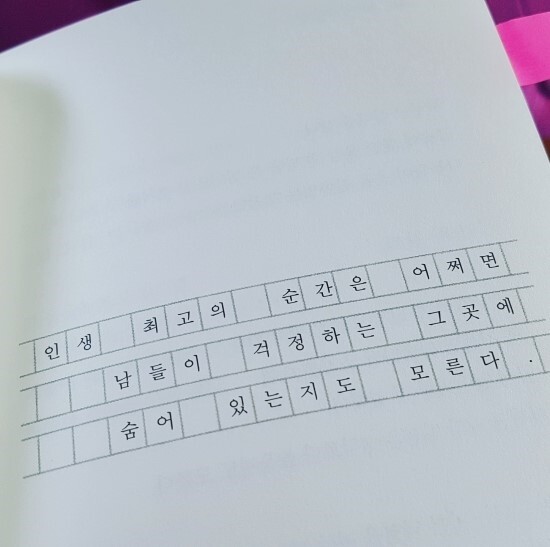 인생 최고의 순간은 어쩌면
남들이 걱정하는 그곳에
숨어 있는지도 모른다.